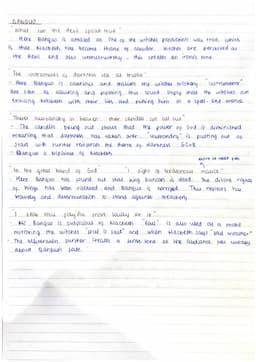 BANQUO
"What, can the devil speak true"
Here Banquo is amazed as one of the witches predictions was true, which is that Macbeth has become thane of cawdor. Witches are perceived as the devil and also untrustworthy - this creates an ironic tone.
"The instruments of darkness tell us truths"
Here Banquo is cautious and realises the witches trickery "instruments" are can be alluring and meaning this could imply that the witches are enticing Macbeth with their lies and putting him in a spell like
"There's husbandry in heaven, their candles are all out"
- The candles being out shows that the power of God is diminished meaning that darkness has taken over. "husbandry" is putting out of stars with further reinforces the theme of darkness.
- Banquo is suspicious of Macbeth
"In the great hand of God" "I fight of treasonous malice"
Here Banquo has found out that King Duncan is dead. The divine rights of kings has been violated and Banquo is horrified. This reveals his bravery and determination to stand against treachery.
"I fear thou play'dst most foully for it"
- Banquo is suspicious of Macbeth. "foul" is also used as a motif mirroring the witches "foul is fair" and when Macbeth says
- The alliteration further creates a tense tone as the audience are worried about Banquo's fate.